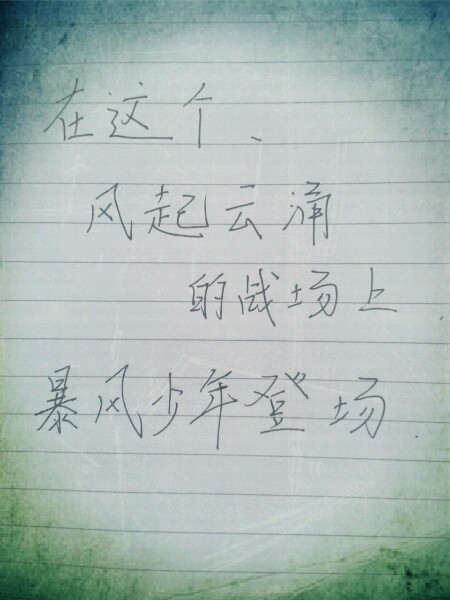 在这个、
风起云涌
的战场上.
暴风少年登场.